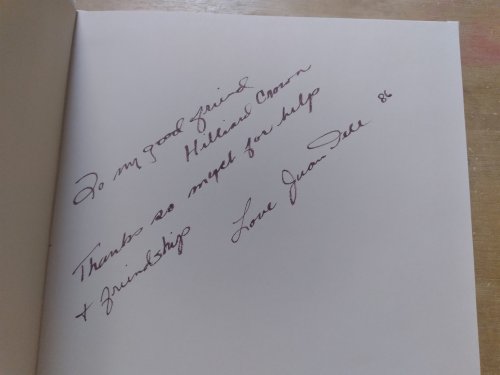 To my good friend
Hilliard Crown
Thanks so myct for help
+ friendships
Love Juan Dell 86